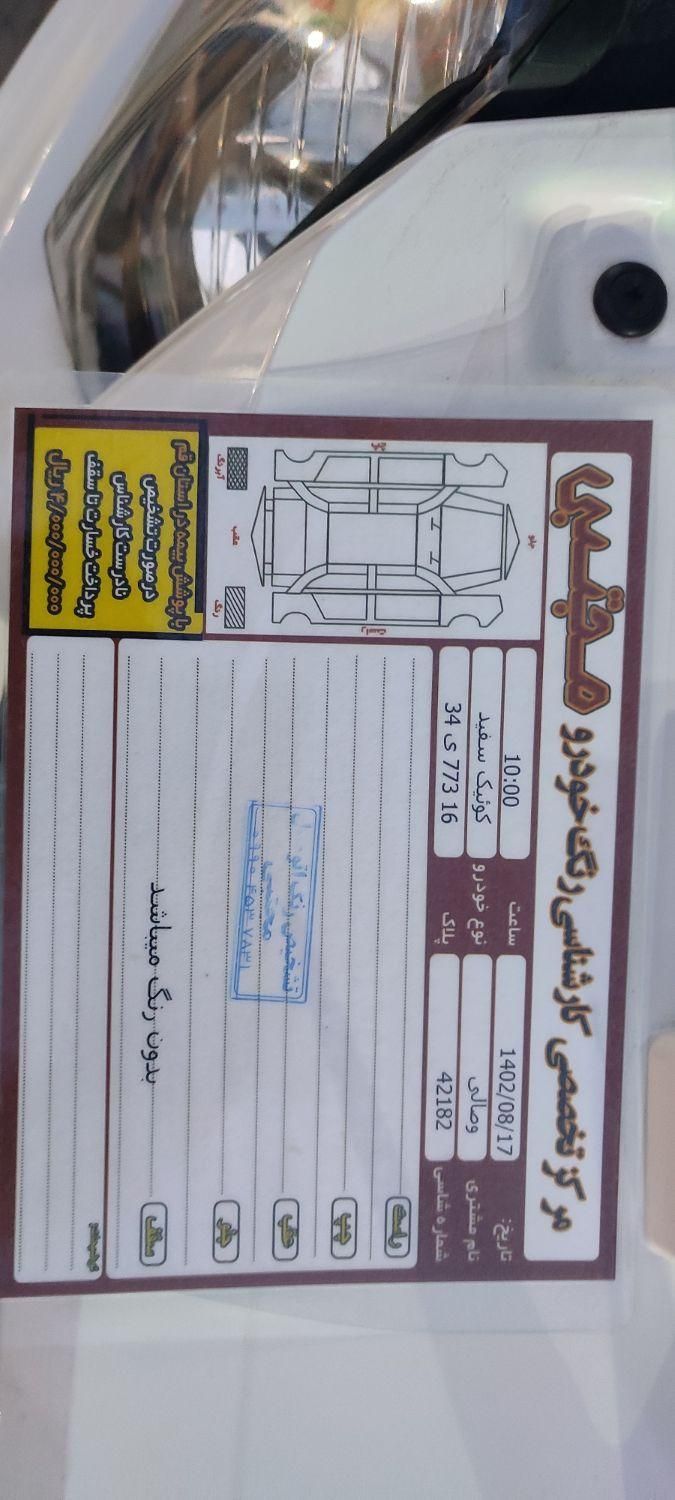 مرکز تخصصی کارشناسی رنگ خودرو مجتبی
تاریخ: 1402/08/17 ساعت 10:00
نام مشتری وصالی نوع خودرو کوئیک سفید
شماره شاسی 42182 پلاک 34 ی 773 16
راست
چپ
عقب
جلو
سقف
بدون رنگ میباشد
توضیحات
تشخیص رنگ اتومبیل
مجتبی
جلو
عقب
رنگ
آبرنگ
با پوشش بیمه در استان قم
در صورت تشخیص
نادرست کارشناس
پرداخت خسارت تا سقف
۴/۰۰۰/۰۰۰/۰۰۰ ریال